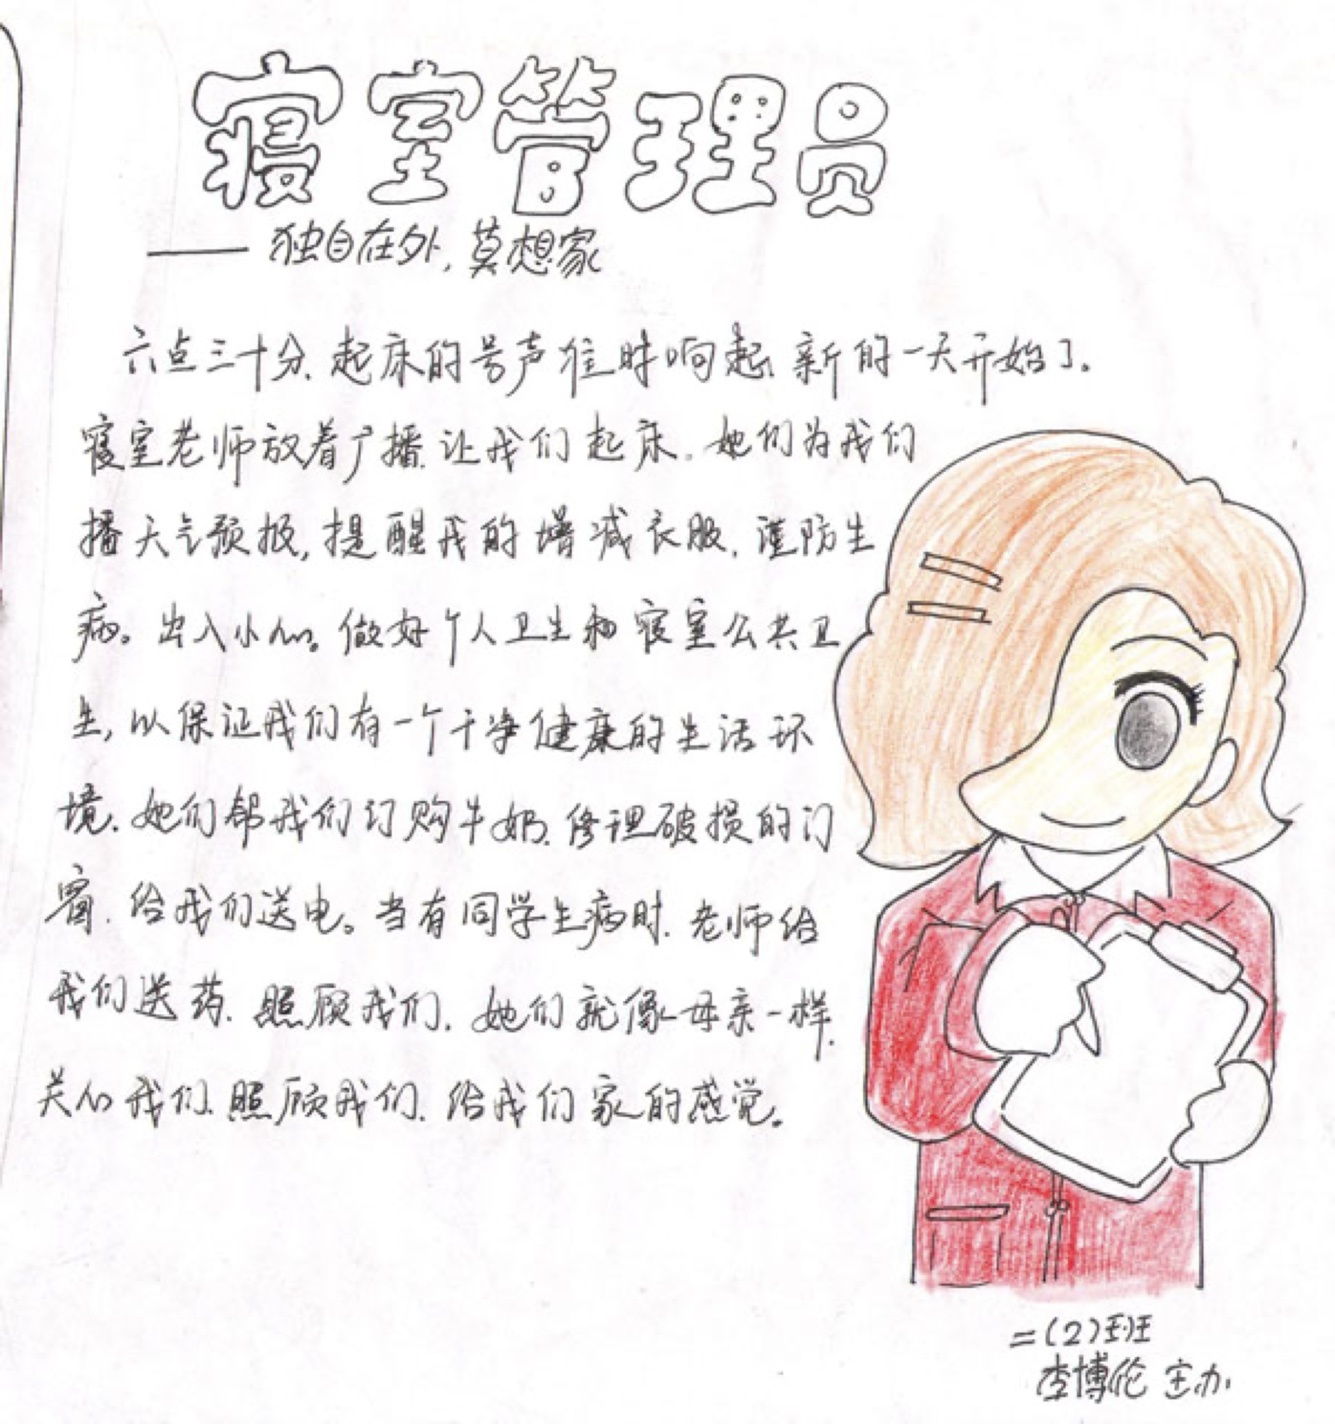 寝室管理员
——独自在外,莫想家
六点三十分,起床的号声准时响起,新的一天开始了。
寝室老师放着广播,让我们起床。她们为我们
播天气预报,提醒我的增减衣服,谨防生
病。出入小心。做好个人卫生和寝室公共卫
生,以保证我们有一个干净健康的生活环
境。她们帮我们订购牛奶,修理破损的门
窗,给我们送电。当有同学生病时,老师给
我们送药,照顾我们,她们就像母亲一样,
关心我们,照顾我们,给我们家的感觉。
二(2)班
李博伦 主办